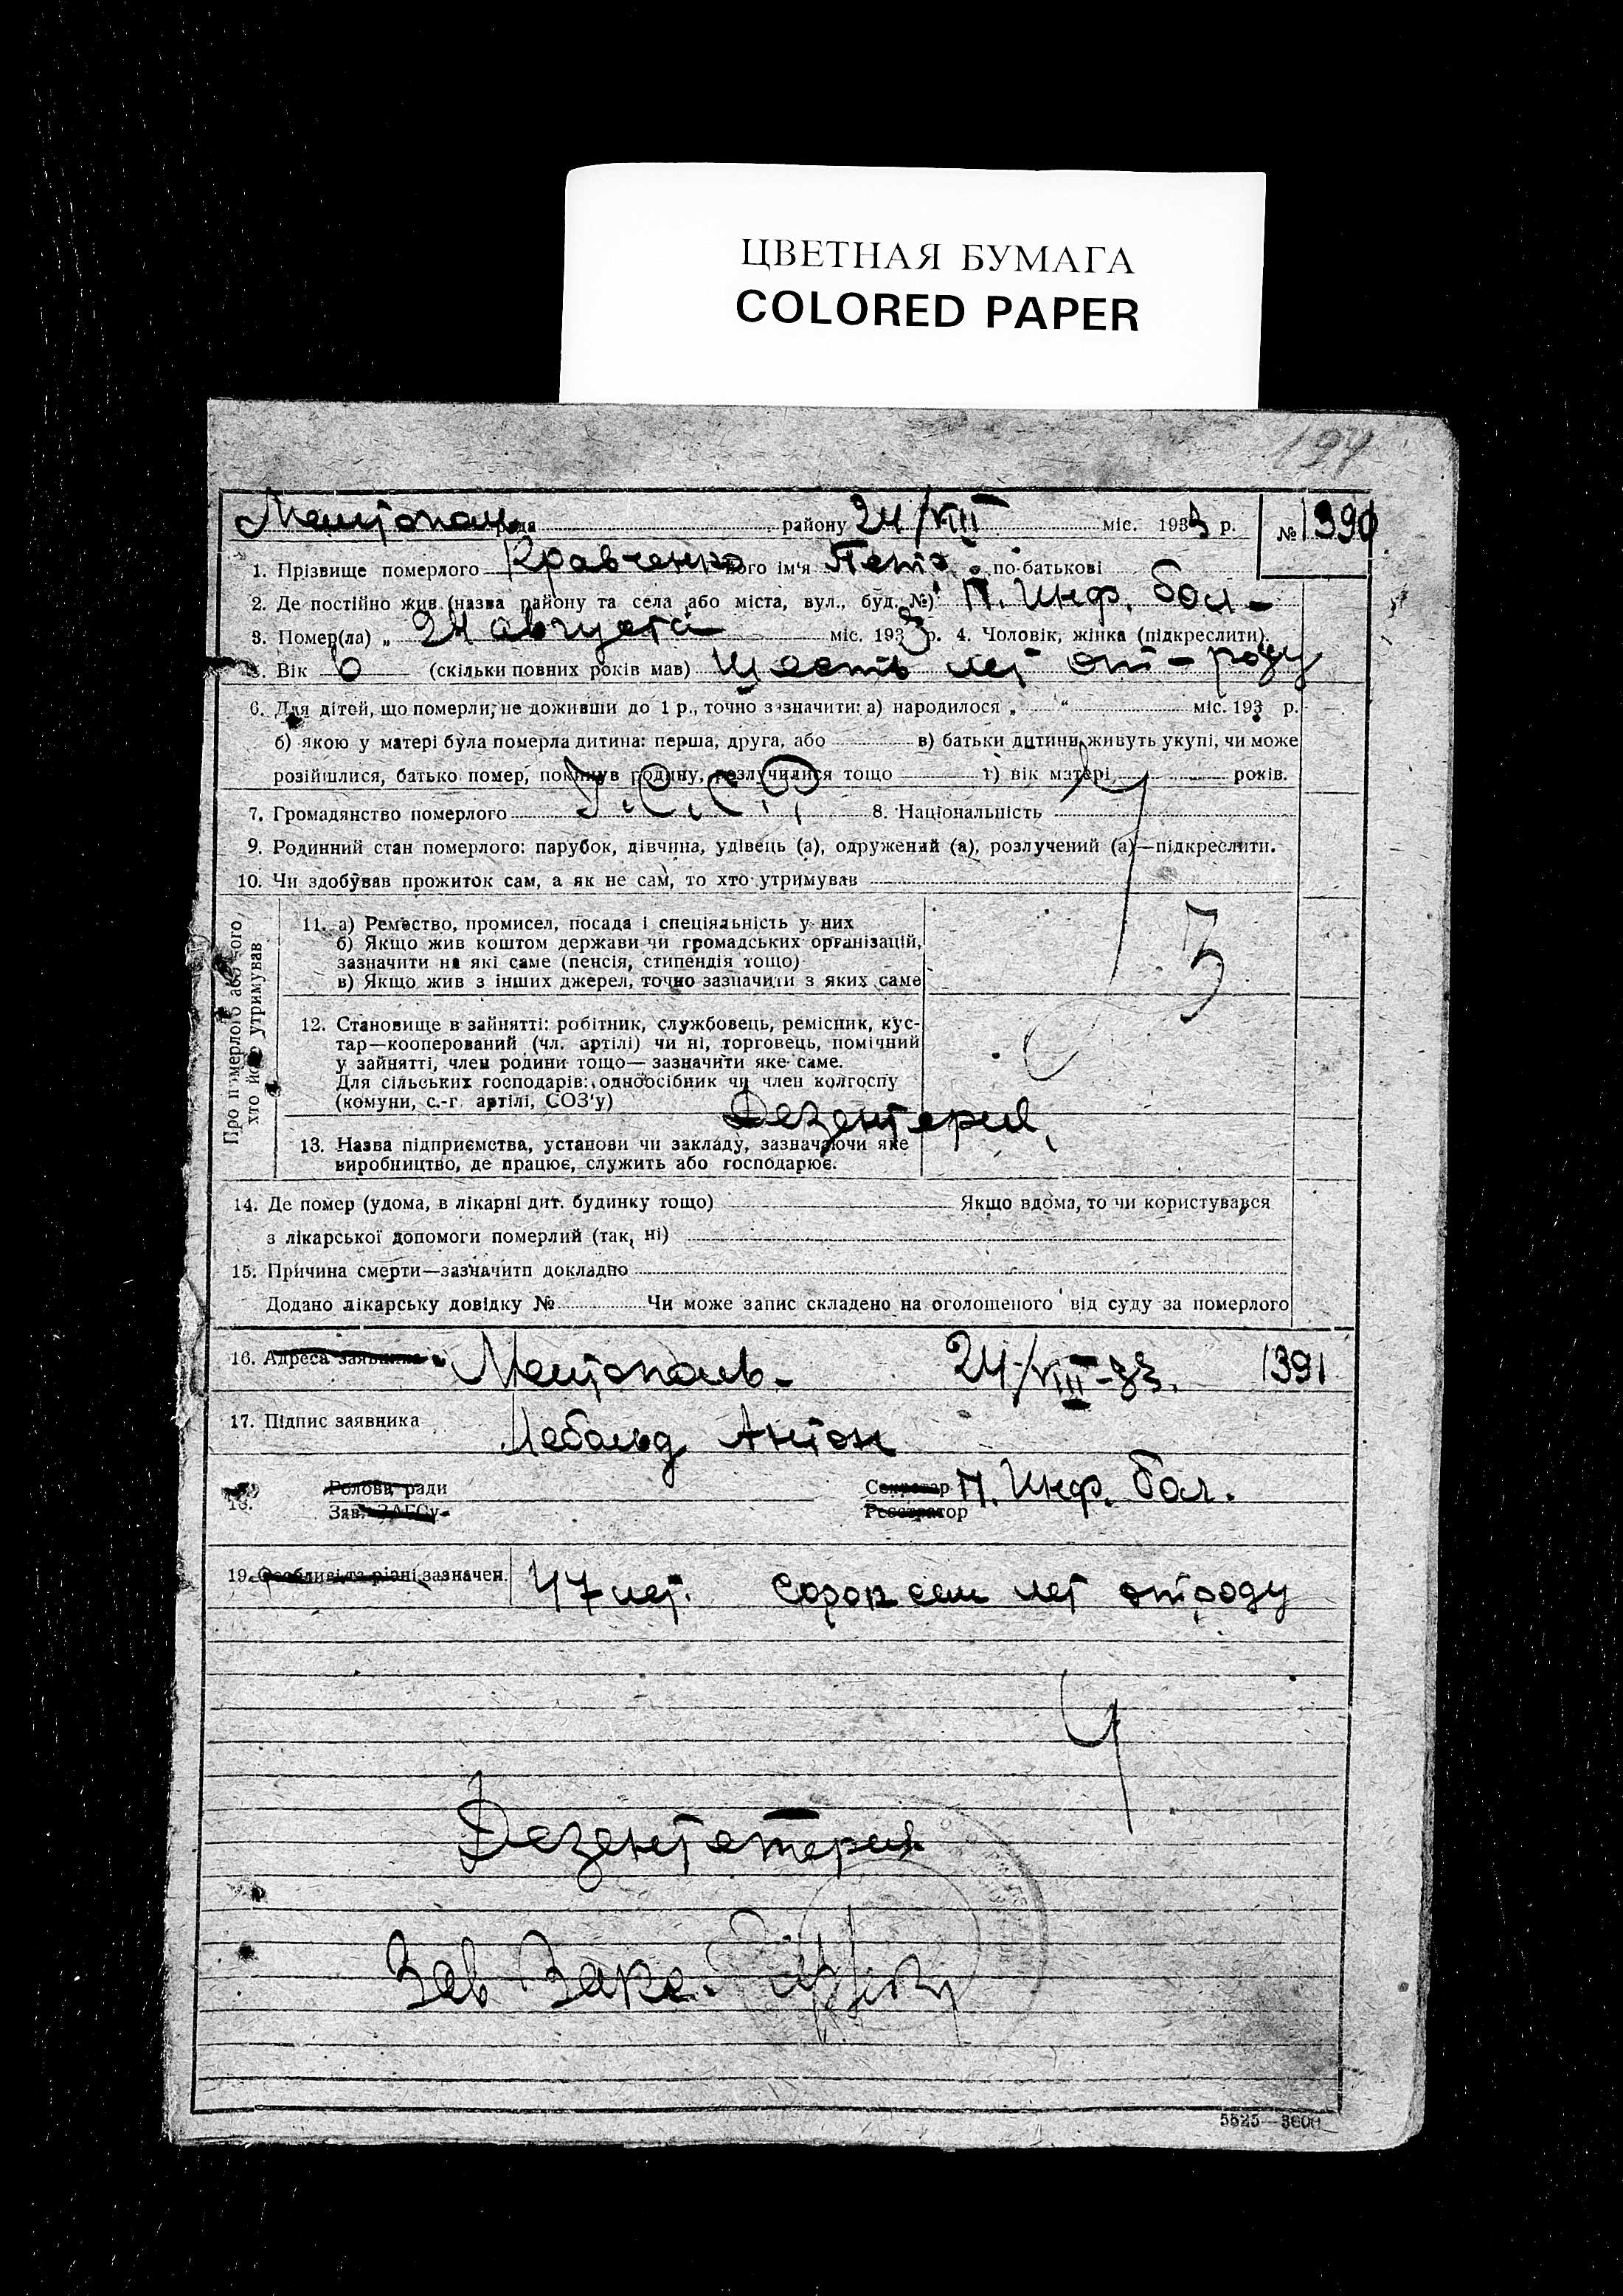 ЦВЕТНАЯ БУМАГА
COLORED PAPER
197
Мелітополь району 24/VIII міс. 1933 р. № 1390
1. Прізвище померлого Кравченко його ім'я Петр по-батькові
2. Де постійно жив (назва району та села або міста, вул., буд. №) П. Инф. бол-
3. Помер(ла) „ 24 августа міс. 1933 р. 4. Чоловік, жінка (підкреслити).
5. Вік 6 (скільки повних років мав) Шесть лет от-роду
6. Для дітей, що померли, не доживши до 1 р., точно зазначити: а) народилося „ “ міс. 193 р.
б) якою у матері була померла дитина: перша, друга, або в) батьки дитини живуть укупі, чи може
розійшлися, батько помер, покинув родину, розлучилися тощо г) вік матері років.
7. Громадянство померлого У.С.С.Р, 8. Національність У
9. Родинний стан померлого: парубок, дівчина, удівець (а), одружений (а), розлучений (а)—підкреслити.
10. Чи здобував прожиток сам, а як не сам, то хто утримував
Про померлого або того хто його утримував
11. а) Ремество, промисел, посада і спеціяльність у них
б) Якщо жив коштом держави чи громадських організацій,
зазначити на які саме (пенсія, стипендія тощо)
в) Якщо жив з інших джерел, точно зазначити з яких саме
3
12. Становище в зайнятті: робітник, службовець, ремісник, кус-
тар—кооперований (чл. артілі) чи ні, торговець, помічний
у зайнятті, член родини тощо—зазначити яке саме.
Для сільських господарів: одноосібник чи член колгоспу
(комуни, с.-г. артілі, СОЗ'у)
Дезентерия,
13. Назва підприємства, установи чи закладу, зазначаючи яке
виробництво, де працює, служить або господарює.
14. Де помер (удома, в лікарні дит. будинку тощо) Якщо вдома, то чи користувався
з лікарської допомоги померлий (так, ні)
15. Причина смерти—зазначити докладно
Додано лікарську довідку № Чи може запис складено на оголошеного від суду за померлого
16. Адреса заявника Мелітополь- 24/VIII-33. 1391
17. Підпис заявника Лебальд Антон
18. Голова ради Секретар П. Инф. бол.
Зав. ЗАГСу Реєстратор
19. Особливі та різні зазначен. 47 лет. Сорок сем лет от роду
У
Зав Загс.
5525—3600